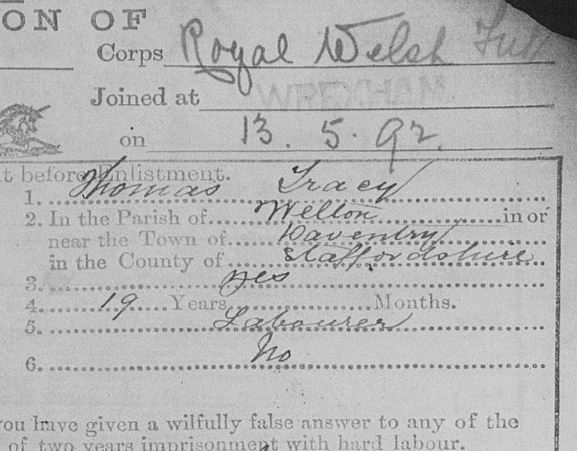 ON OF
Corps Royal Welsh Fus
Joined at WREXHAM
on 13. 5. 92.
t before Enlistment.
1. Thomas Tracy
2. In the Parish of Welton in or
near the Town of Daventry
in the County of Staffordshire
3. yes
4. 19 Years Months.
5. Labourer
6. No
you have given a wilfully false answer to any of the
of two years imprisonment with hard labour.